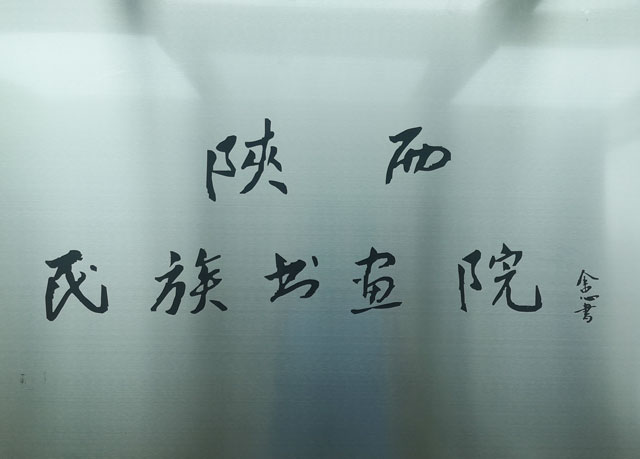 陕西
民族书画院
念书